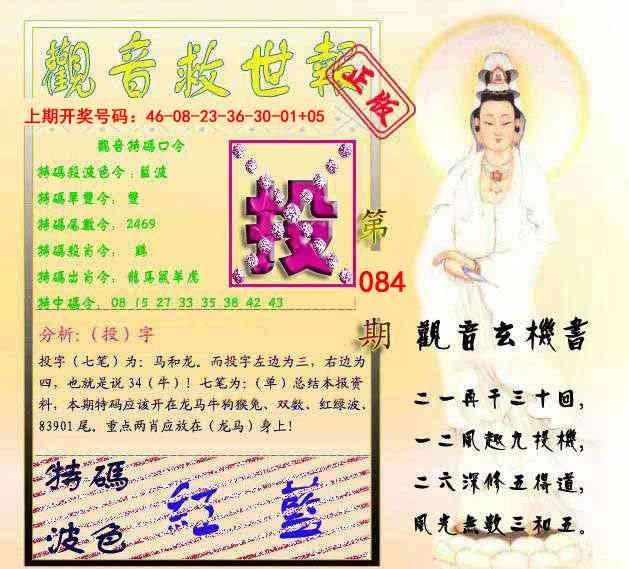 觀音救世報
正版
上期开奖号码：46-08-23-36-30-01+05
觀音特碼口令
特碼殺波色令：藍波
特碼單雙令： 雙
特碼尾數令：2469
特碼殺肖令： 鷄
特碼出肖令：龍馬鼠羊虎
特中碼令：08 15 27 33 35 38 42 43
投
第
084
期
分析:（投）字
投字（七笔）为：马和龙。而投字左边为三，右边为
四，也就是说 34（牛）！七笔为：（单）总结本报资
料，本期特码应该开在龙马牛狗猴兔、双数、红绿波、
83901 尾。重点两肖应放在（龙马）身上！
特碼
波色
紅 藍
觀音玄機書
二一再干三十回，
一二風趣九投機，
二六深修五得道，
風光無數三和五。